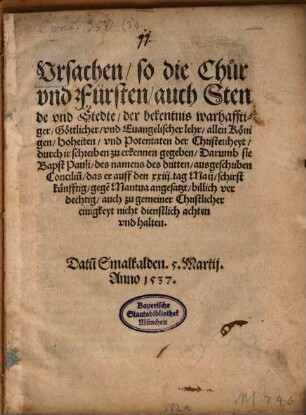 Vrsachen/ so die Chür
vnd Fürsten/ auch Sten
de vnd Stedte/ der bekentnis warhaffti-
ger/ Göttlicher/ vnd Euangelischer lehr/ allen Köni
gen/ hoheiten/ vnd Potentaten der Christenheyt/
durch ir schreiben zu erkennen gegeben/ Darumb sie
Bapst Pauli/ des namens des dritten/ ausgeschriben
Conciliū/ das er auff den xxiij. tag Maij/ schirst
künfftig/ gegē Mantua angesatzt/ billich ver
dechtig/ auch zu gemeiner Christlicher
einigkeyt nicht dienstlich achten
vnd halten.
Datū Smalkalden. 5. Martij.
Anno 1537.
Bayerische
Staatsbibliothek
München